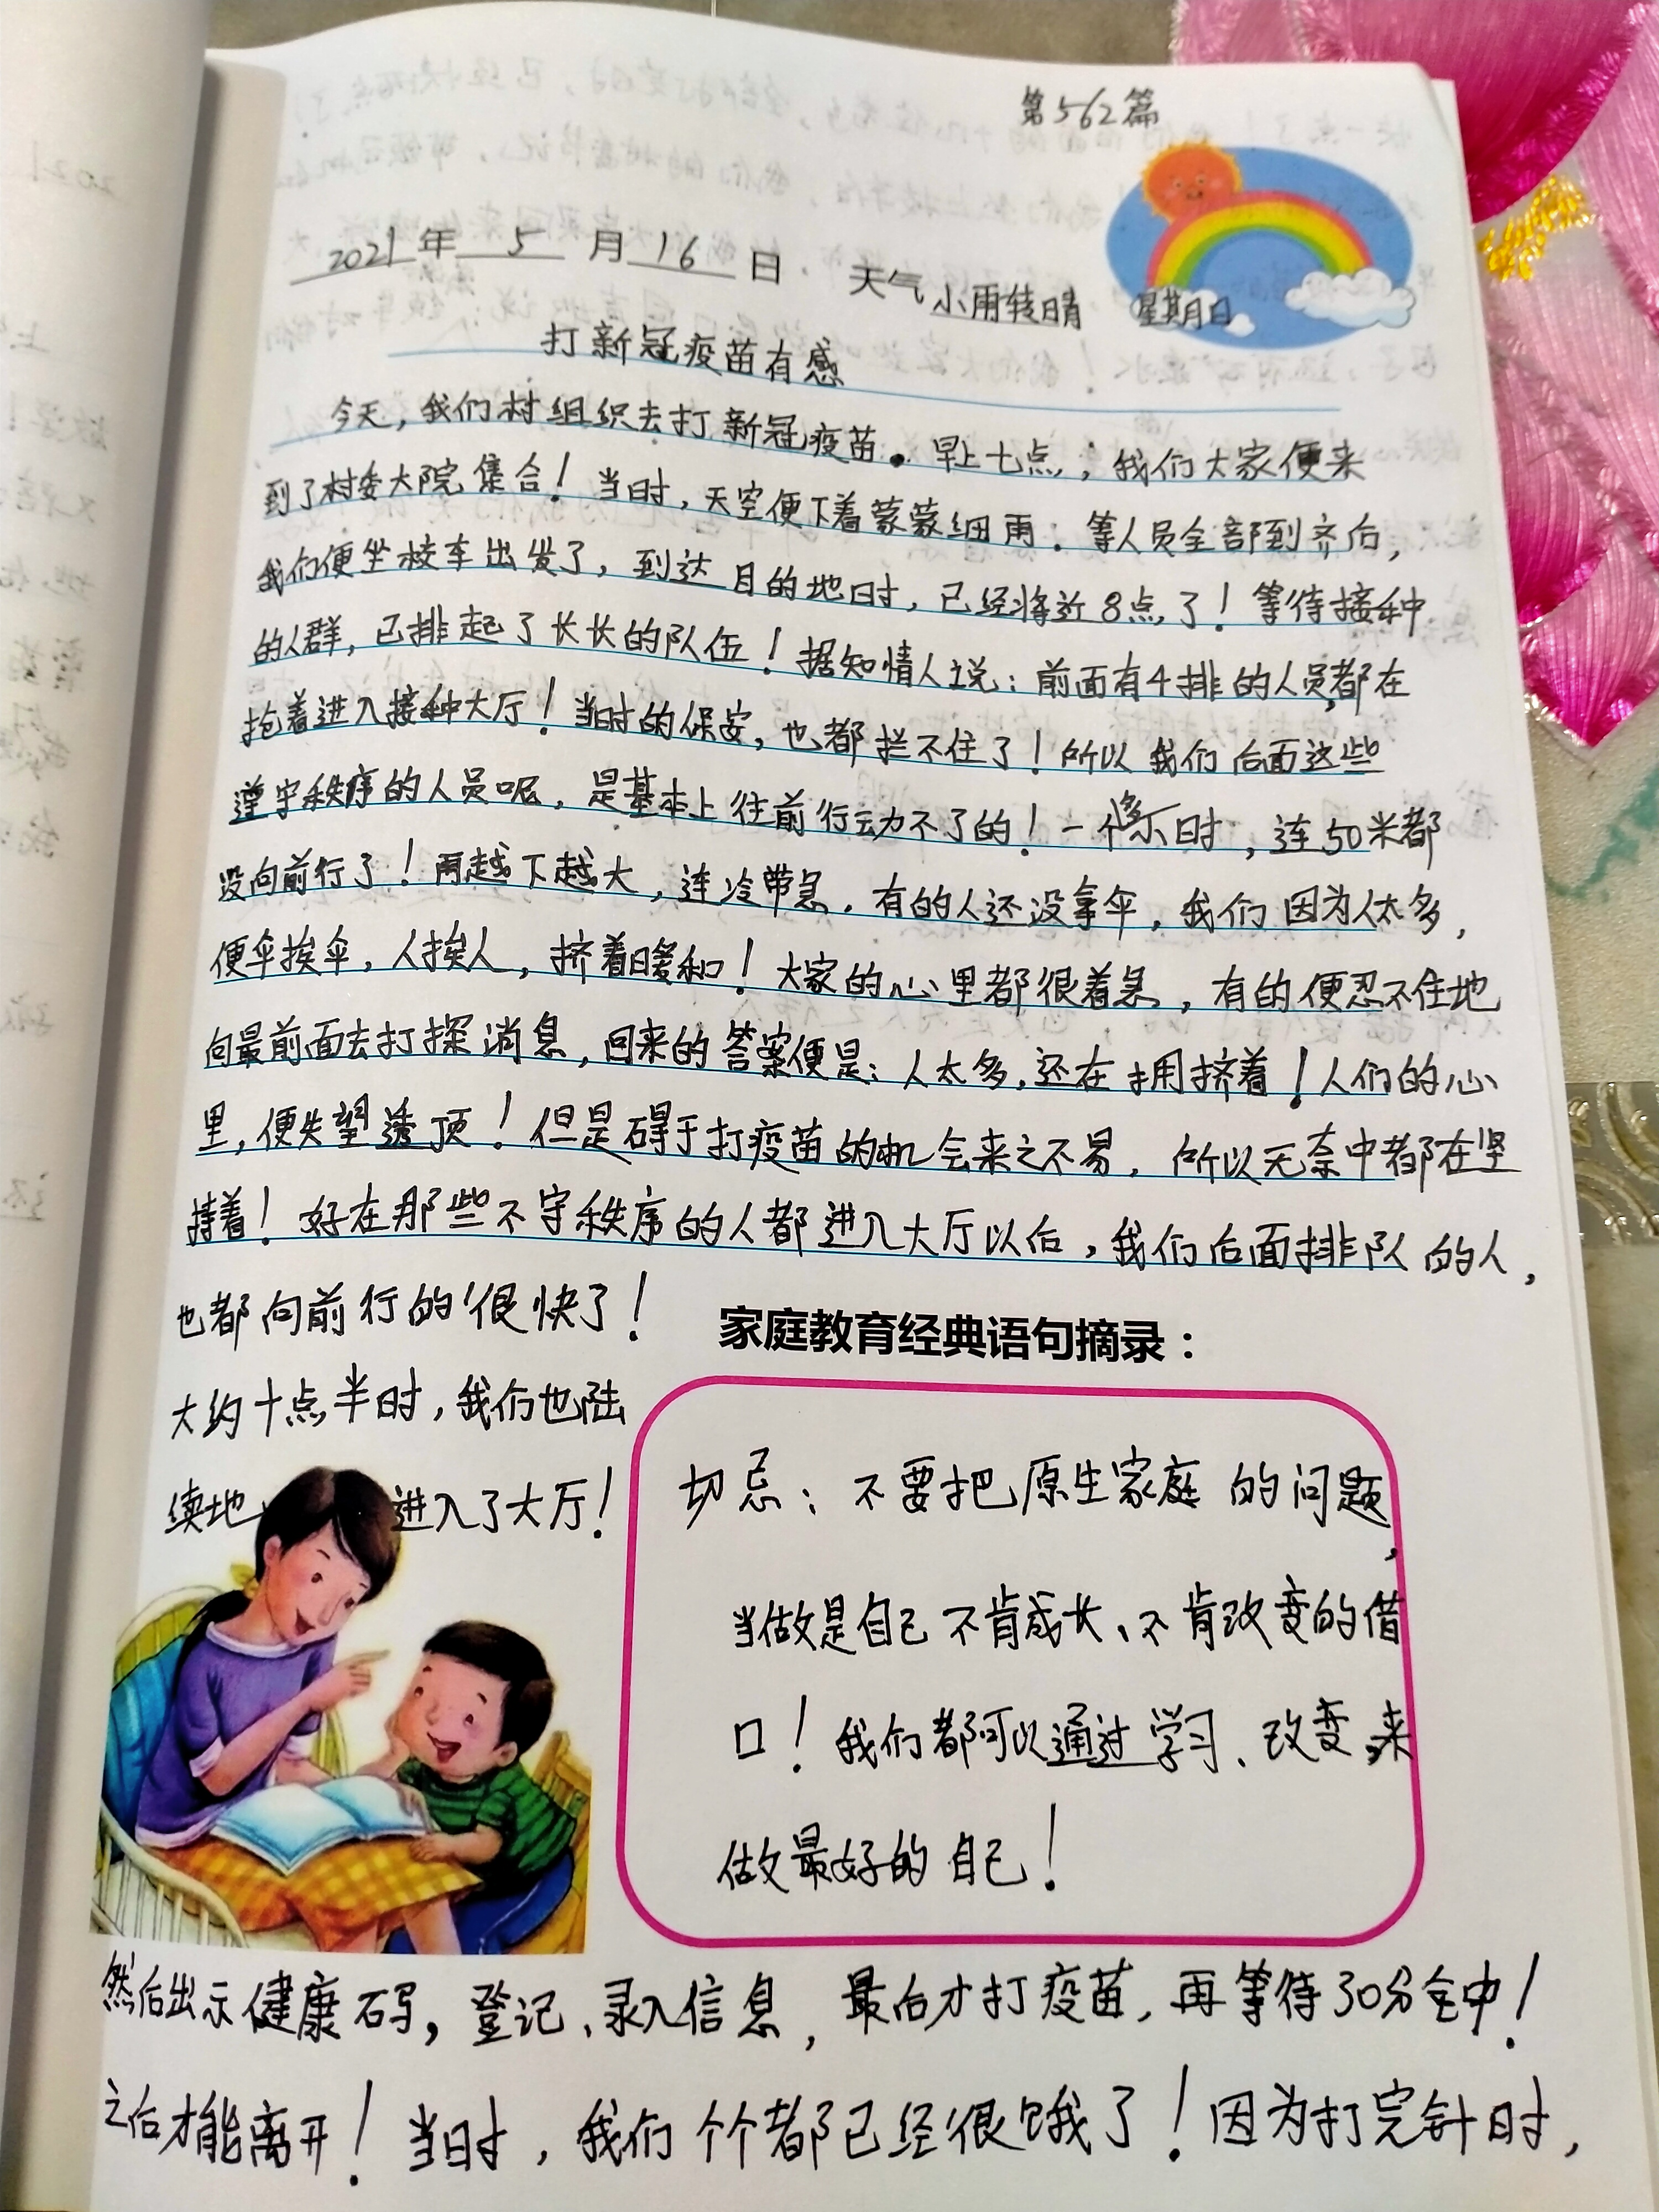 第562篇
2021年 5 月 16 日. 天气 小雨转晴 星期日
打新冠疫苗有感
今天,我们村组织去打新冠疫苗。早上七点,我们大家便来
到了村委大院集合!当时,天空便下着蒙蒙细雨.等人员全部到齐后,
我们便坐校车出发了,到达目的地时,已经将近8点了!等待接种
的人群,已排起了长长的队伍!据知情人士说:前面有4排的人员,都在
抢着进入接种大厅!当时的保安,也都拦不住了!所以我们后面这些
遵守秩序的人员呢,是基本上往前行动不了的!一个多小时,连50米都
没向前行了!雨越下越大,连冷带急.有的人还没拿伞,我们因为人太多,
便伞挨伞,人挨人,挤着暖和!大家的心里都很着急,有的便忍不住地
向最前面去打探消息,回来的答案便是:人太多,还在拥挤着!人们的心
里,便失望透顶!但是碍于打疫苗的机会来之不易,所以无奈中都在坚
持着!好在那些不守秩序的人都进入大厅以后,我们后面排队的人,
也都向前行的很快了!
大约十点半时,我们也陆
续地 进入了大厅!
家庭教育经典语句摘录:
切忌:不要把原生家庭的问题,
当做是自己不肯成长、不肯改变的借
口!我们都可以通过学习、改变,来
做最好的自己!
然后出示健康码,登记、录入信息,最后才打疫苗,再等待30分钟!
之后才能离开!当时,我们个个都已经很饿了!因为打完针时,